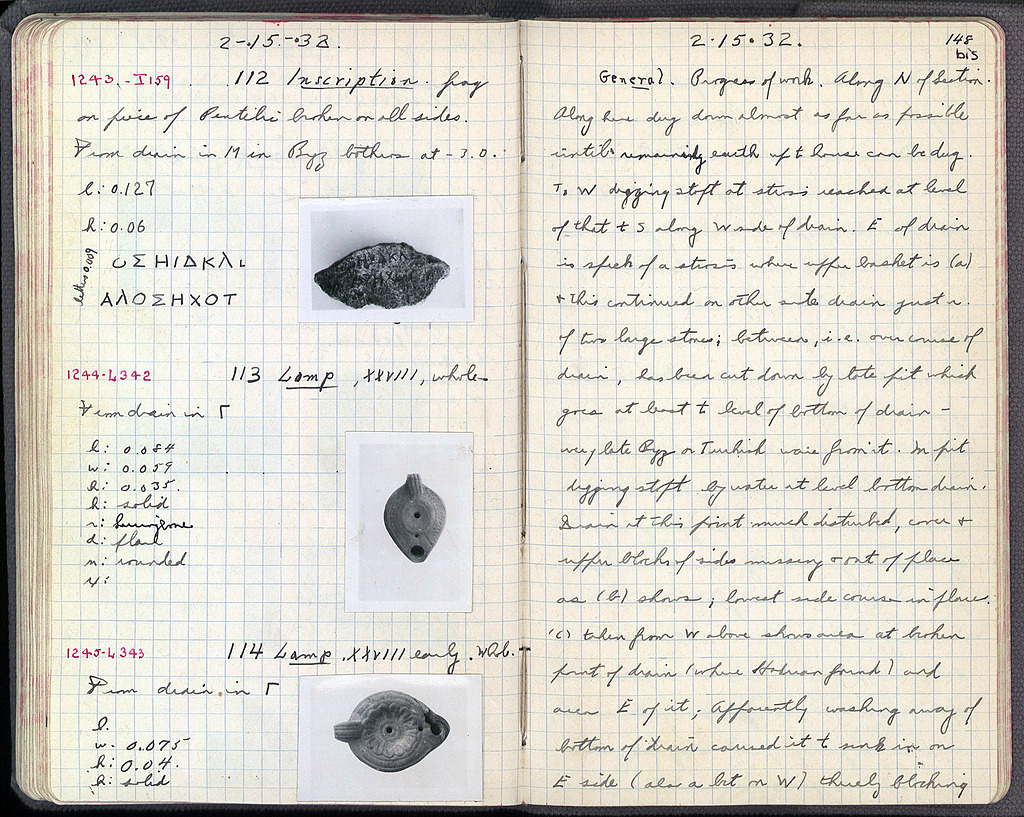 2-.15.-.32.
1243.-I159 112 Inscription. frag
on piece of Pentelic broken on all sides.
From drain in M in Byz bothros at -3.0.
l: 0.127
h: 0.06
letters 0.009
ΟΣΗΙΔΚΛΙ
ΑΛΟΣΗΧΟΤ
1244-L342 113 Lamp, XXVIII, whole
From drain in Γ
l: 0.084
w: 0.059
h: 0.035.
h: solid
r: herringbone
d: floral
n: rounded
1245-L343 114 Lamp. XXVIII early. Whole.
From drain in Γ
l.
w. 0.075
h: 0.04.
h: solid
2.15.32.
148 bis
General. Progress of work. Along N of Section.
Along here dug down almost as far as possible
until remaining earth up to house can be dug.
To W digging stopt at stosis reached at level
of that to S along W side of drain. E of drain
is speck of a stosis where upper basket is (a)
+ this continued on other side drain just n.
of two large stones; between, i.e. over course of
drain, has been cut down by late pit which
goes at least to level of bottom of drain -
very late Byz or Turkish ware from it. In pit
digging stopt by water at level bottom drain.
Drain at this point much disturbed, cover +
upper blocks of sides missing + out of place
as (b) shows; lowest side course in place.
(c) taken from W above shows area at broken
part of drain (where Hadrian found) and
area E of it; Apparently washing away of
bottom of drain caused it to sink in on
E side (also a bit on W) thereby blocking